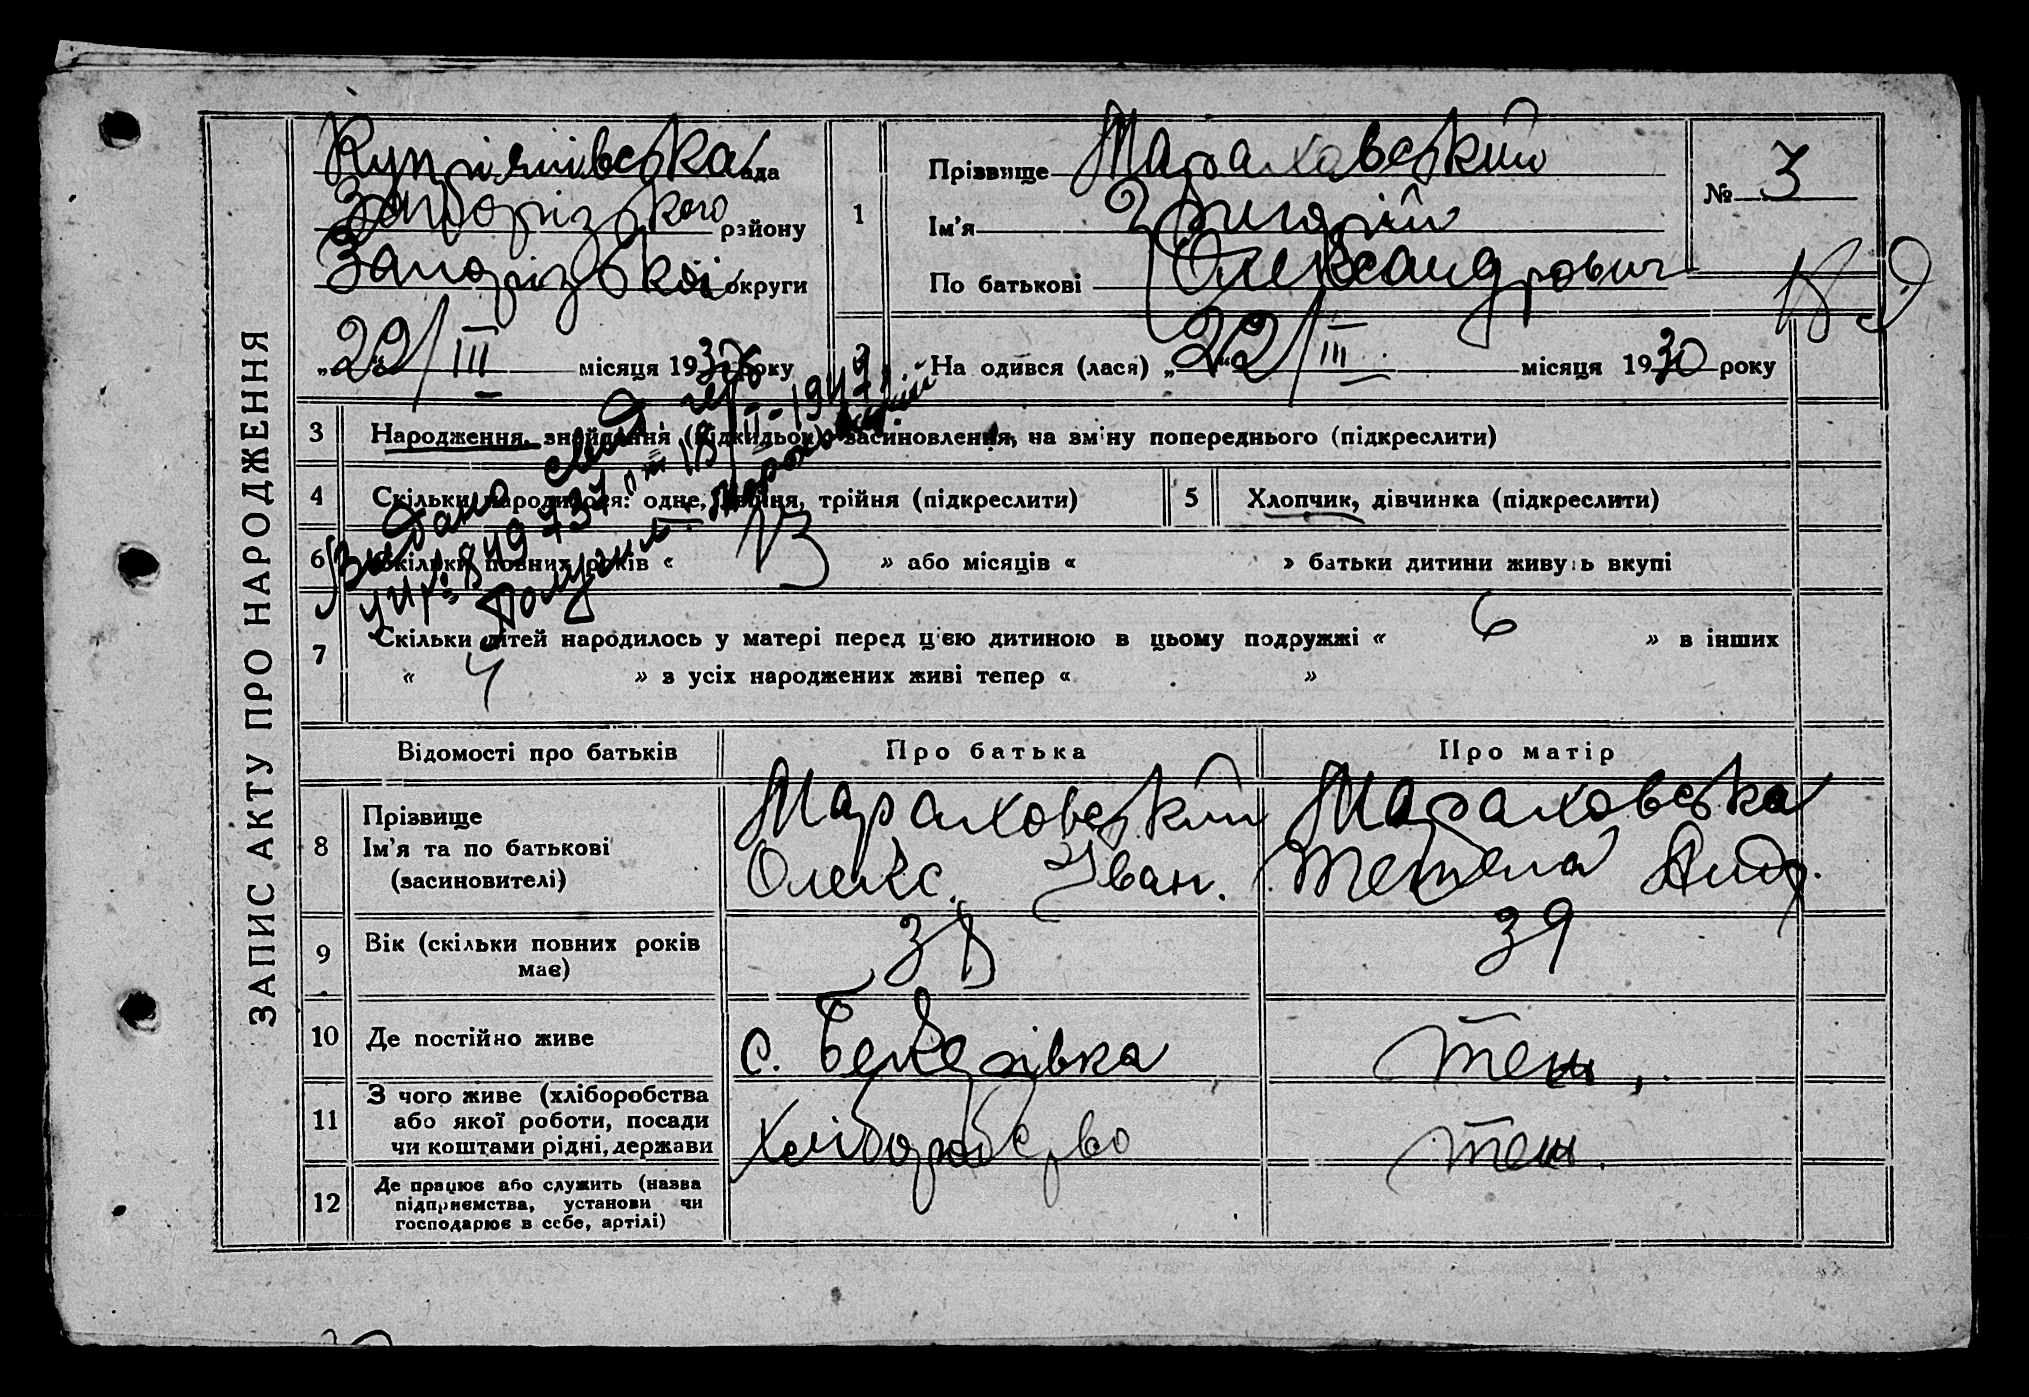 ЗАПИС АКТУ ПРО НАРОДЖЕННЯ
Купріянівська рада
Запорізького району
Запорізької округи
„22“/III місяця 1930 року
1
Прізвище Мараховський
Ім'я Григорій
По батькові Олександрович
№ 3
2 На одився (лася) „22“/III місяця 1930 року
3 Народження, знайдення (підкидьок), засиновлення, на зміну попереднього (підкреслити)
4 Скільки народилося: одне, двійня, трійня (підкреслити)
5 Хлопчик, дівчинка (підкреслити)
6 Скільки повних років « 13 » або місяців « » батьки дитини живуть вкупі
7 Скільки дітей народилось у матері перед ц'єю дитиною в цьому подружжі « 6 » в інших
« 4 » з усіх народжених живі тепер « »
Видано свид.
849737 от 18/II-1947
Получил Мараховский
Відомості про батьків
Про батька
Про матір
8 Прізвище
Ім'я та по батькові
(засиновителі)
Мараховський
Олекс. Іван.
Мараховська
Тетяна Андр.
9 Вік (скільки повних років
має)
38
39
10 Де постійно живе
с.
теж
11 З чого живе (хліборобства
або якої роботи, посади
чи коштами рідні, держави
Хліборобство
теж.
12 Де працює або служить (назва
підприємства, установи чи
господарює в себе, артілі)